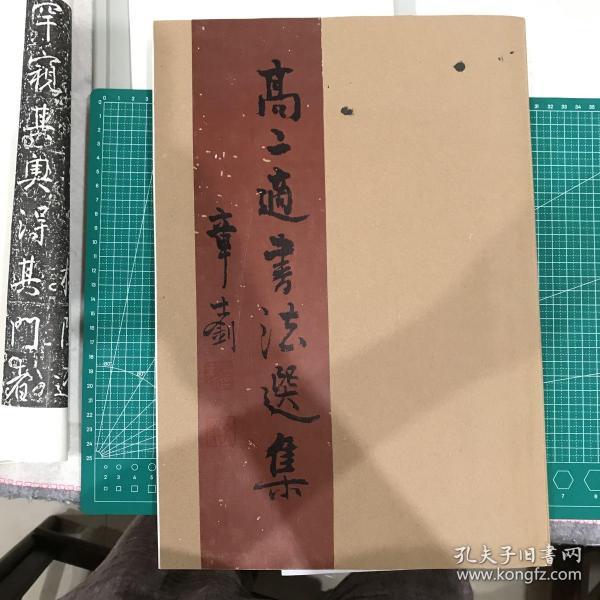 高二適書法選集
章士釗
罕窺其奥得其門者
孔夫子旧书网
www.kongfz.com